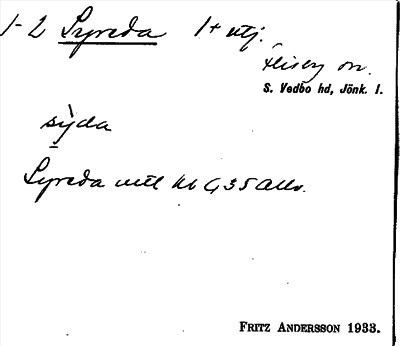 1-2 Syreda 1+ utj.
Flisby sn.
S. Vedbo hd, Jönk. l.
sỳda
Syreda mtl kb G 35 Allv.
FRITZ ANDERSSON 1933.